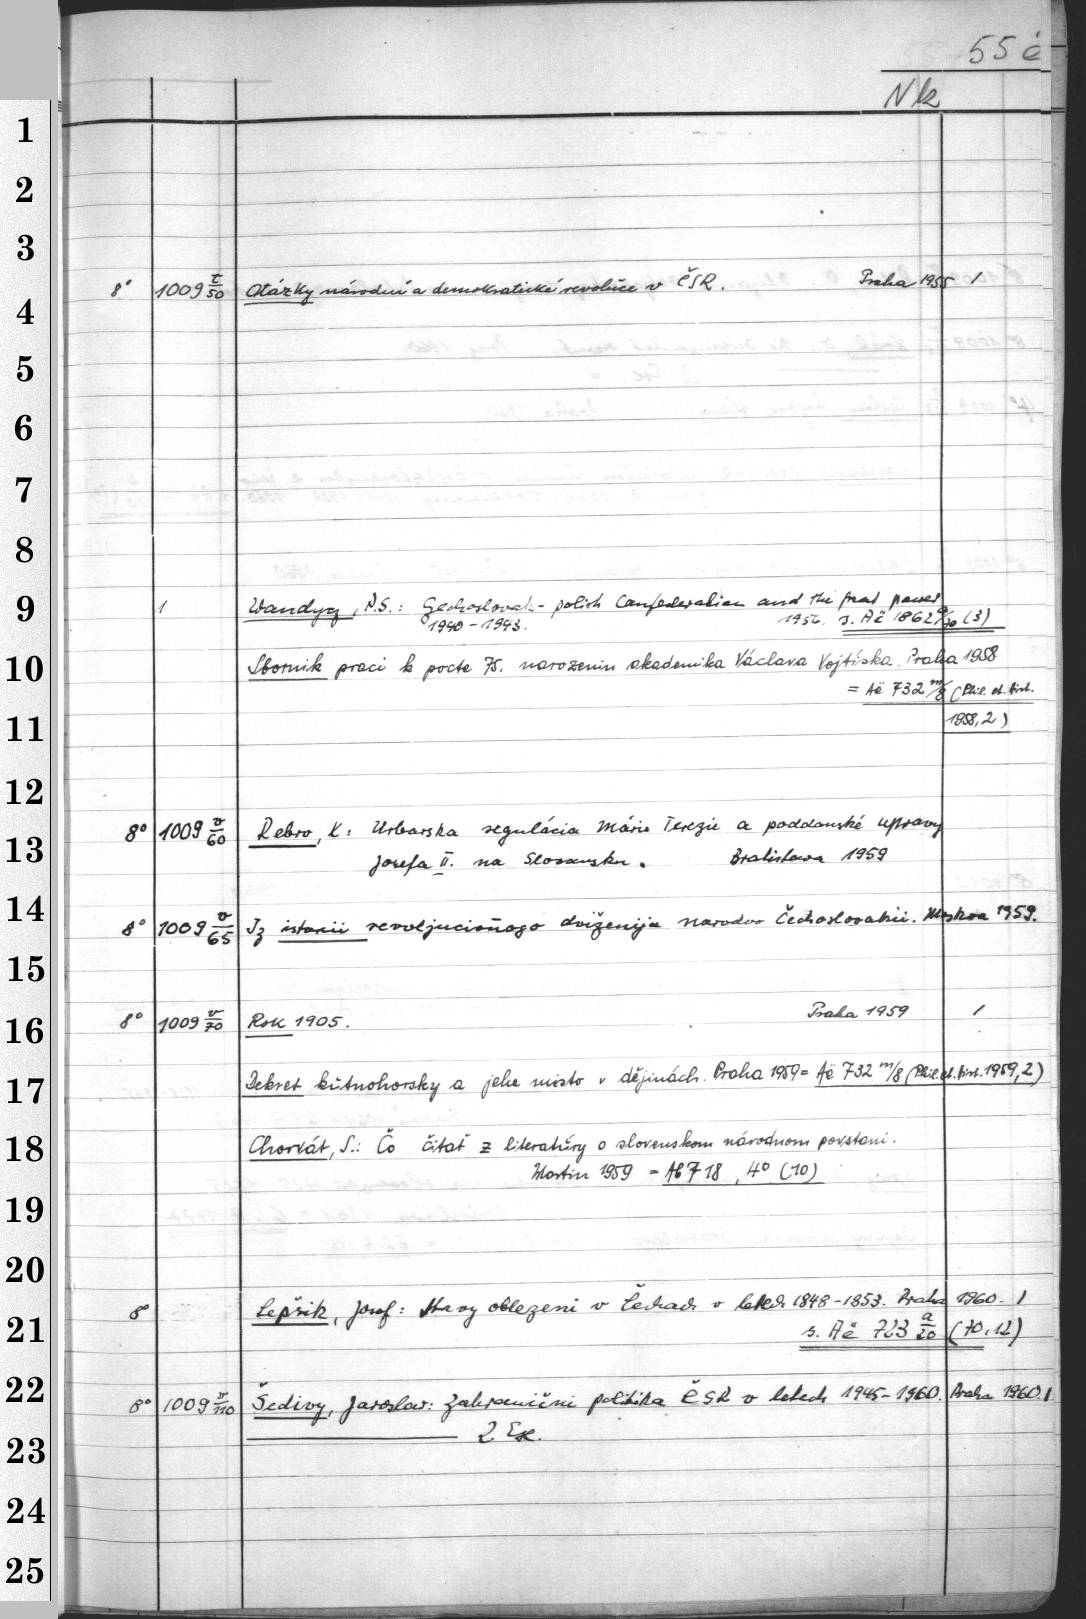 55 č
Nk
1
2
3
8° 1009 t/50 Otázky národní a demokratické revoluce v ČSR. Praha 1955 1
4
5
6
7
8
9 1 Wandycz, P.S.: Czechoslovak-polish Confederation and the great powers
1940-1943. 1956. s. Aë 1862 a/70 (3)
10 Sbornik praci k pocte 75. narozenin akademika Václava Vojtíška. Praha 1958
= Aë 732 m/8 (Phil. et hist.
11 1958,2)
12
8° 1009 v/60 Rebro, K: Urbarska regulácia Márie Terezie a poddanské upravy
13 Josefa II. na Slovensku. Bratislava 1959
14 8° 1009 v/65 Iz istorii revoljucionnogo dviženija narodov Čechoslovakii. Moskva 1959.
15
16 8° 1009 v/70 Rok 1905. Praha 1959 1
17 Dekret kutnohorsky a jeho misto v dějinách. Praha 1959 = Aë 732 m/8 (Phil. et. hist. 1959,2)
18 Chorvát, S.: Čo čitať z literatúry o slovenskom národnom povstaní.
Martin 1959 = Ab 718, 4° (10)
19
20
8° Lepšik, Josef: Stavy oblezeni v Čechach v letech 1848-1853. Praha 1960. 1
21 s. Aë 723 a/20 (70,12)
22 8° 1009 v/110 Šedivy, Jaroslav: Zahraniční politika ČSR v letech 1945-1960. Praha 1960. 1
2 Ex.
23
24
25